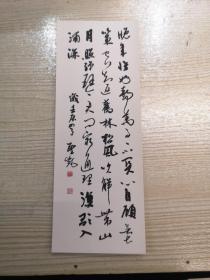 晚年惟好静万事不關心自顧無長
策空知返舊林松風吹解帶山
月照彈琴君問窮通理漁歌入
浦深